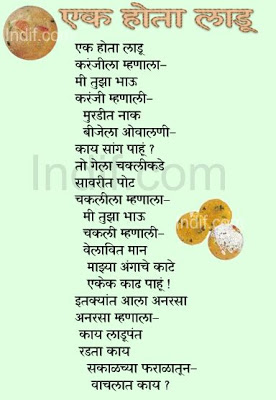 एक होता लाडू
एक होता लाडू
करंजीला म्हणाला-
मी तुझा भाऊ
करंजी म्हणाली-
मुरडीत नाक
बीजेला ओवालणी-
काय सांग पाहूं ?
तो गेला चक्लीकडे
सावरीत पोट
चकलीला म्हणाला-
मी तुझा भाऊ
चकली म्हणाली-
वेलावित मान
माझ्या अंगाचे काटे
एकेक काढ पाहूं !
इतक्यांत आला अनरसा
अनरसा म्हणाला-
काय लाडूपंत
रडता काय
सकाळच्या फराळातून-
वाचलात काय ?
Indif.com
Indif.com
Indif.com